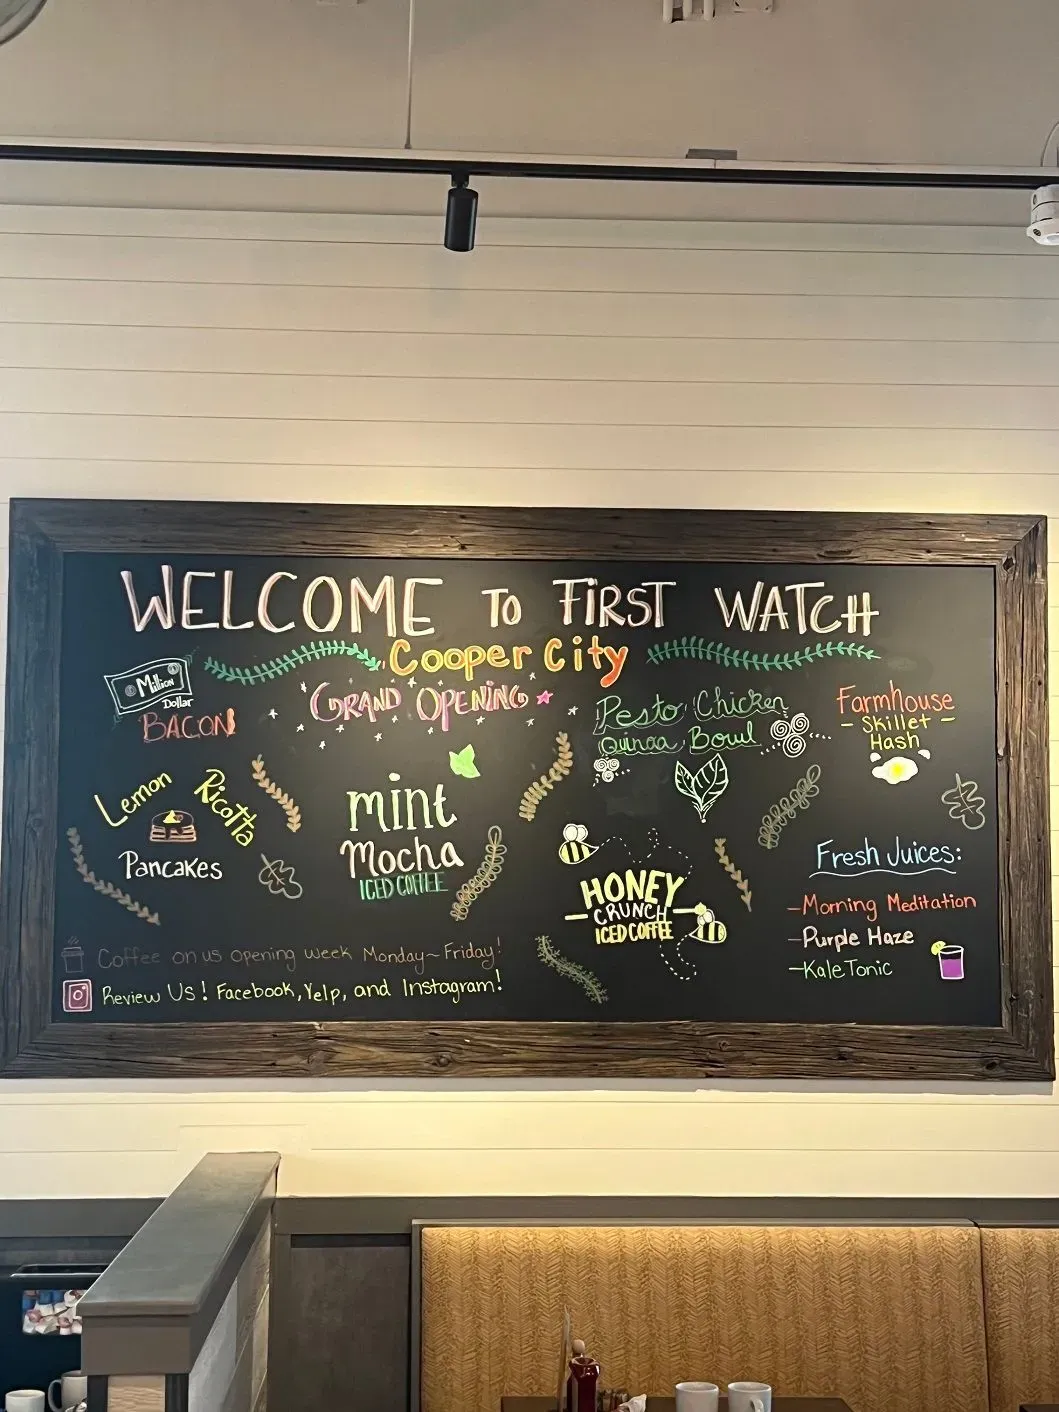 WELCOME TO FIRST WATCH
Cooper City
GRAND OPENING
Million
Dollar
BACON
Lemon Ricotta
Pancakes
mint
Mocha
ICED COFFEE
Pesto Chicken
Quinoa Bowl
Farmhouse
- Skillet -
Hash
HONEY
CRUNCH
ICED COFFEE
Fresh Juices:
-Morning Meditation
-Purple Haze
-Kale Tonic
Coffee on us opening week Monday~Friday!
Review Us! Facebook, Yelp, and Instagram!